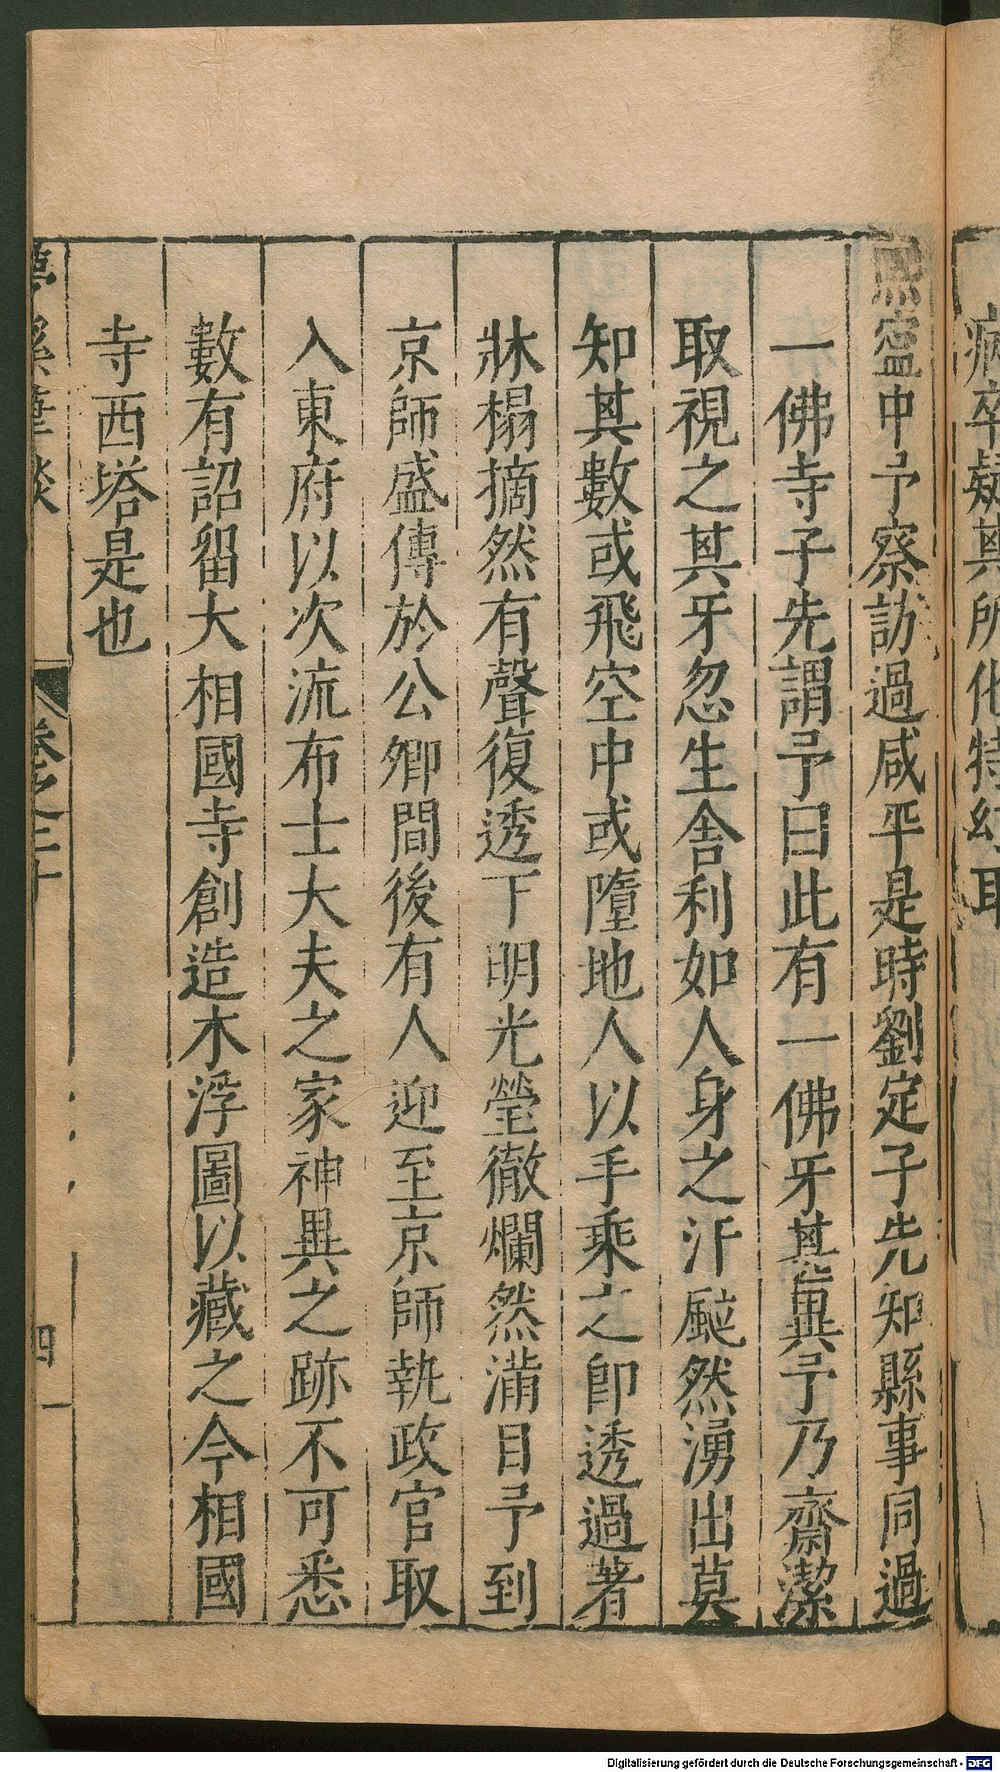 病卒疑其所化特
熙寧中予察訪過咸平是時劉定子先知縣事同過
一佛寺子先謂予曰此有一佛牙甚異予乃齋潔
取視之其牙忽生舎利如人身之汗颰然湧出莫
知其數或飛空中或墮地人以手乘之卽透過著
牀榻摘然有聲復透下明光瑩徹爛然滿目予到
京師盛傳於公卿間後有人迎至京師執政官取
入東府以次流布士大夫之家神異之跡不可悉
數有詔留大相國寺創造木浮圖以藏之今相國
寺西塔是也
夢溪筆談 卷之二十 四
Digitalisierung gefördert durch die Deutsche Forschungsgemeinschaft - DFG